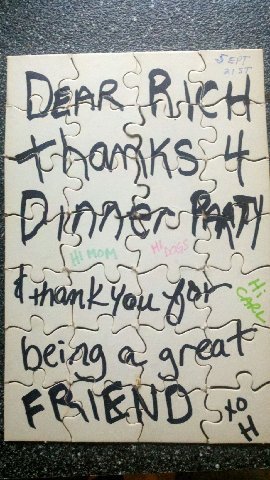 SEPT
21ST
DEAR RICH
thanks 4
Dinner PARTY
HI MOM
HI DOGS
Hi
CARL
& thank you for
being a great
FRIEND
XO
H